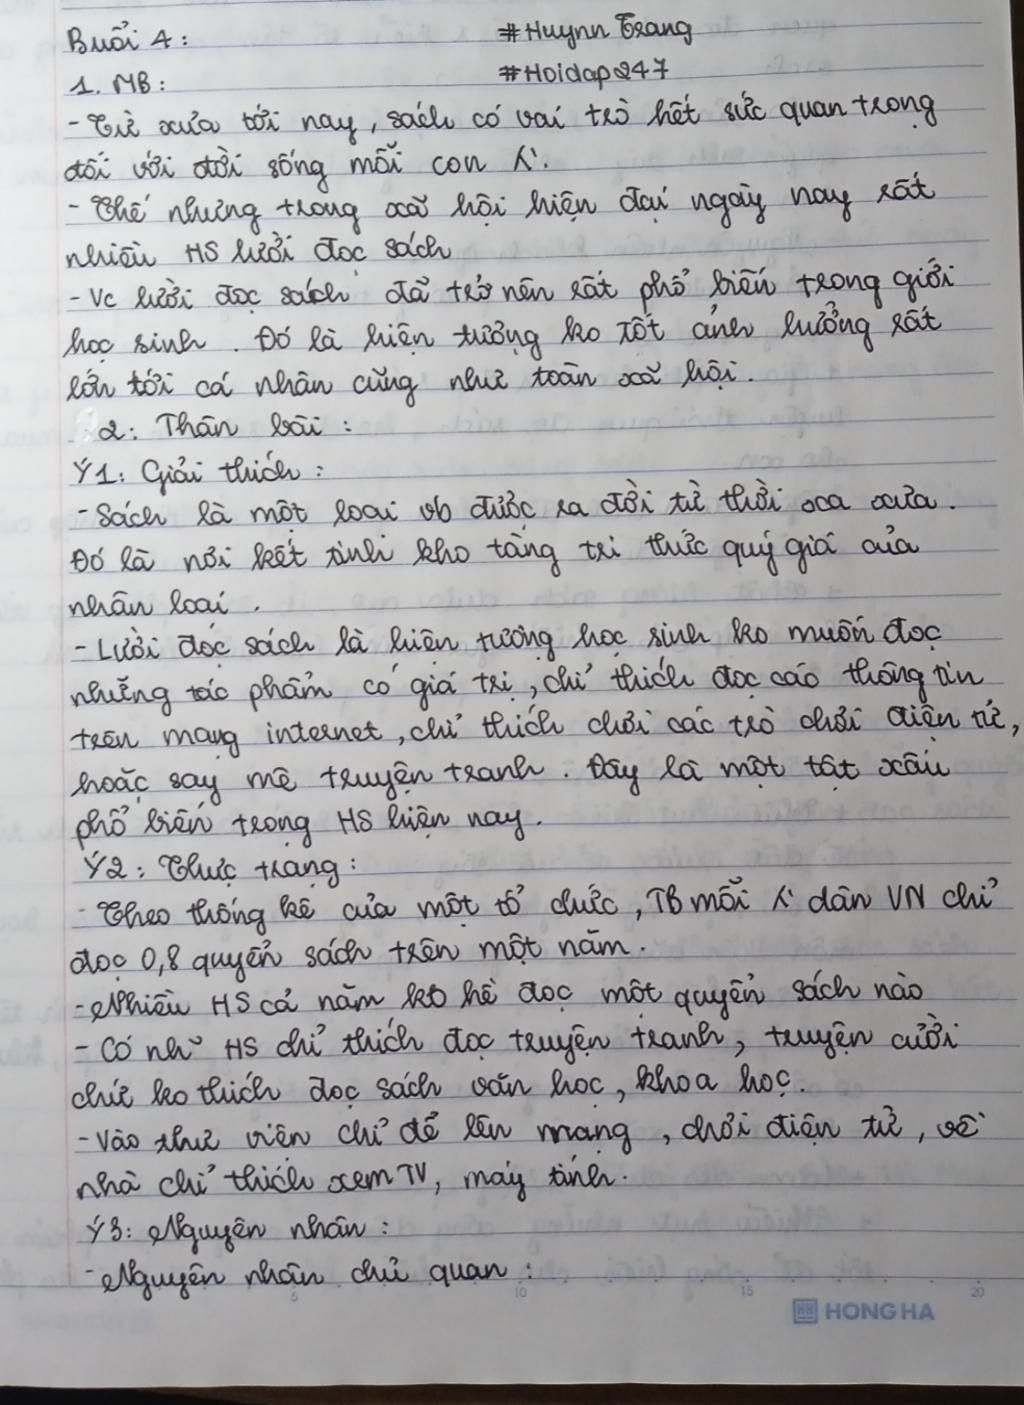 Buổi 4: #Huynn Trang
1. MB: #Hoidap247
- Từ xưa tới nay, sách có vai trò hết sức quan trọng
đối với đời sống mỗi con ng`.
- Thế nhưng trong xã hội hiện đại ngày nay rất
nhiều HS lười đọc sách
- Vc lười đọc sách đã trở nên rất phổ biến trong giới
học sinh. Đó là hiện tượng ko tốt ảnh hưởng rất
lớn tới cá nhân cũng như toàn xã hội.
2: Thân bài:
Ý1: Giải thích:
- Sách là một loại vb được ra đời từ thời xa xưa.
Đó là nơi kết tinh kho tàng tri thức quý giá của
nhân loại.
- Lười đọc sách là hiện tượng học sinh ko muốn đọc
những tác phẩm có giá trị, chỉ thích đọc các thông tin
trên mạng internet, chỉ thích chơi các trò chơi điện tử,
hoặc say mê truyện tranh. Đây là một tật xấu
phổ biến trong HS hiện nay.
Ý2: Thực trạng:
- Theo thống kê của một tổ chức, TB mỗi ng` dân VN chỉ
đọc 0,8 quyển sách trên một năm.
- Nhiều HS cả năm ko hề đọc một quyển sách nào
- Có nh~ HS chỉ thích đọc truyện tranh, truyện cười
chứ ko thích đọc sách văn học, khoa học.
- Vào thư viện chỉ để lên mạng, chơi điện tử, về
nhà chỉ thích xem TV, máy tính.
Ý3: Nguyên nhân:
- Nguyên nhân chủ quan:
5 10 15 20
HONG HA